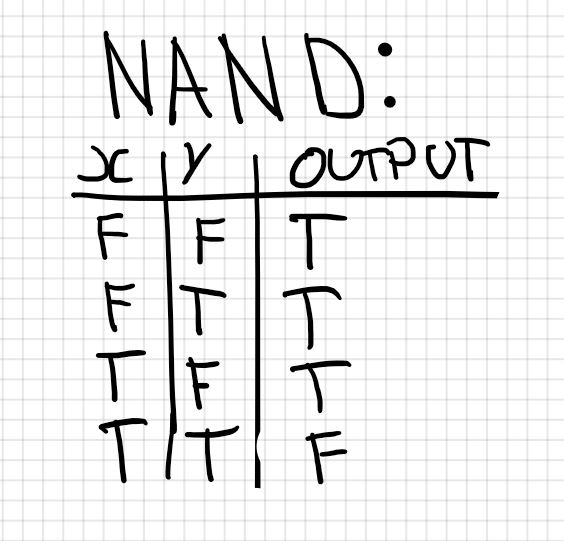 NAND:
X Y OUTPUT
F F T
F T T
T F T
T T F